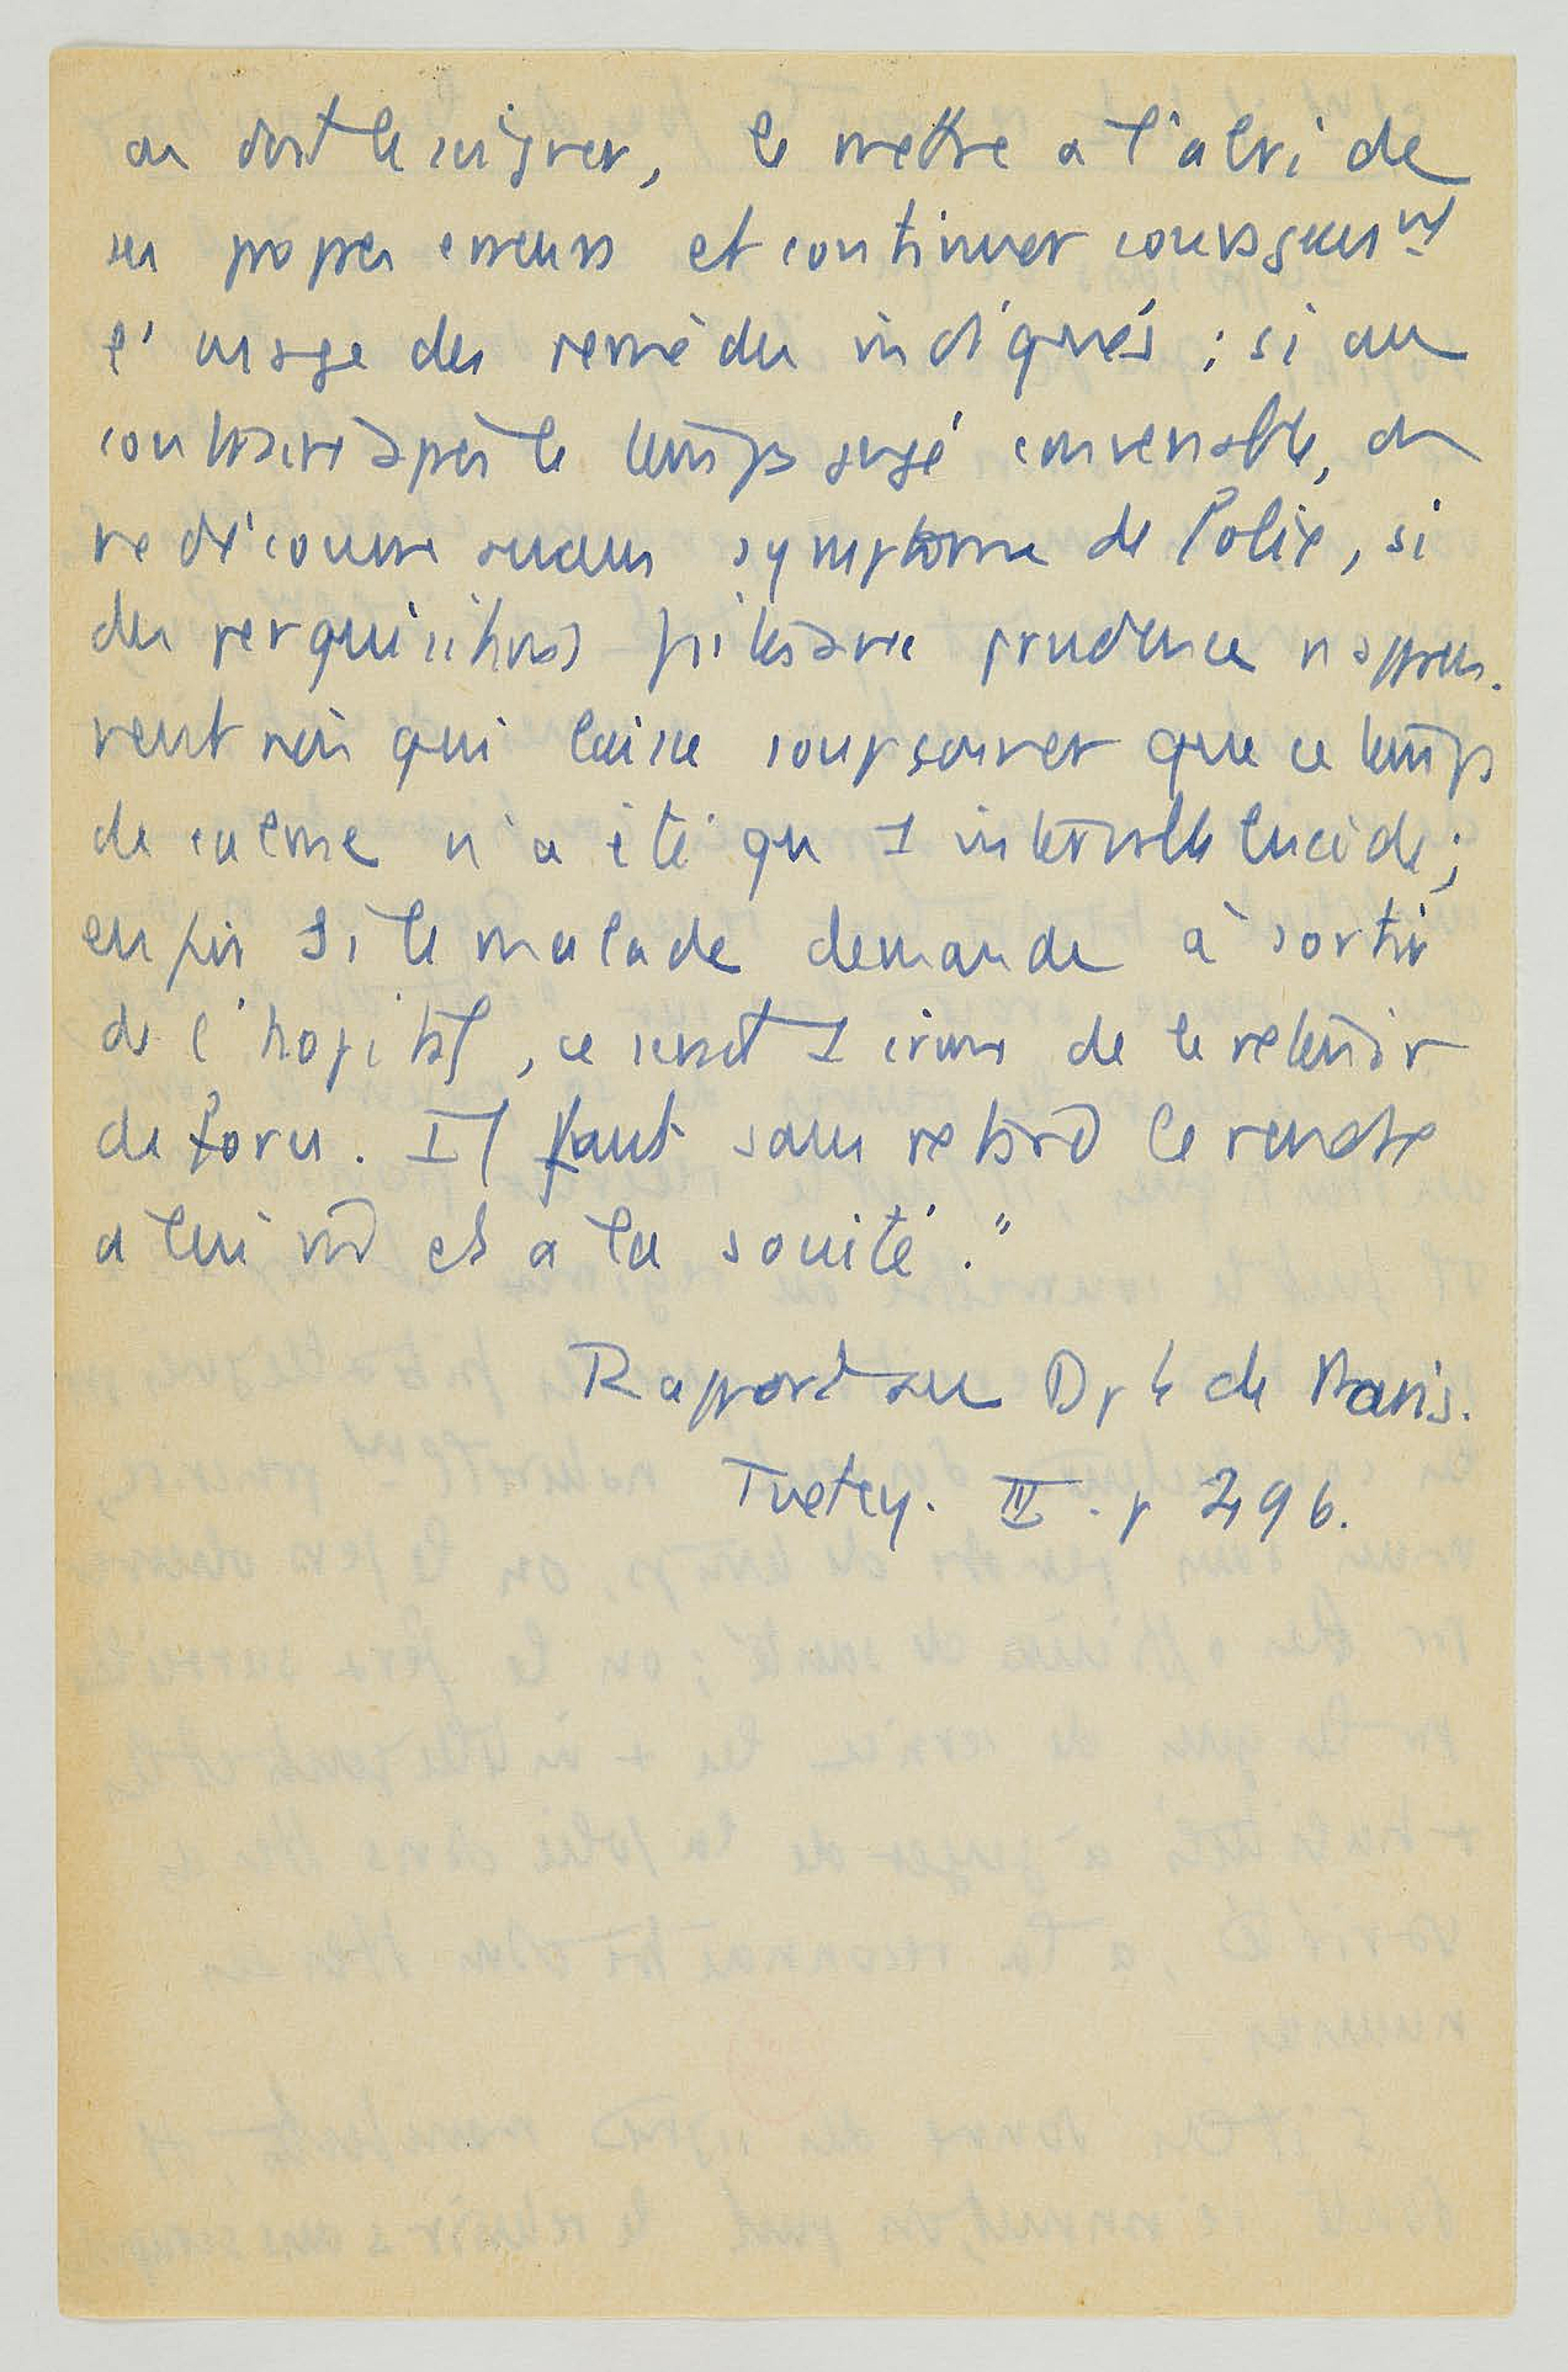 on doit le soigner, le mettre a l'abri de
ses propres erreurs et continuer courageusnt
l'usage des remèdes indiqués ; si au
contraire après le temps jugé convenable, on
ne découvre aucun symptome de folie, si
des perquisitions faites avec prudence n'appren-
nent rien qui laisse soupçonner que ce temps
de calme n'a été qu 1 intervalle lucide ;
enfin si le malade demande à sortir
de l'hopital, ce serait 1 crime de le retenir
de force. Il faut sans retard le rendre
a lui md et a la société."
Rapport au Dpt de Paris.
Tuetey. III. p 496.